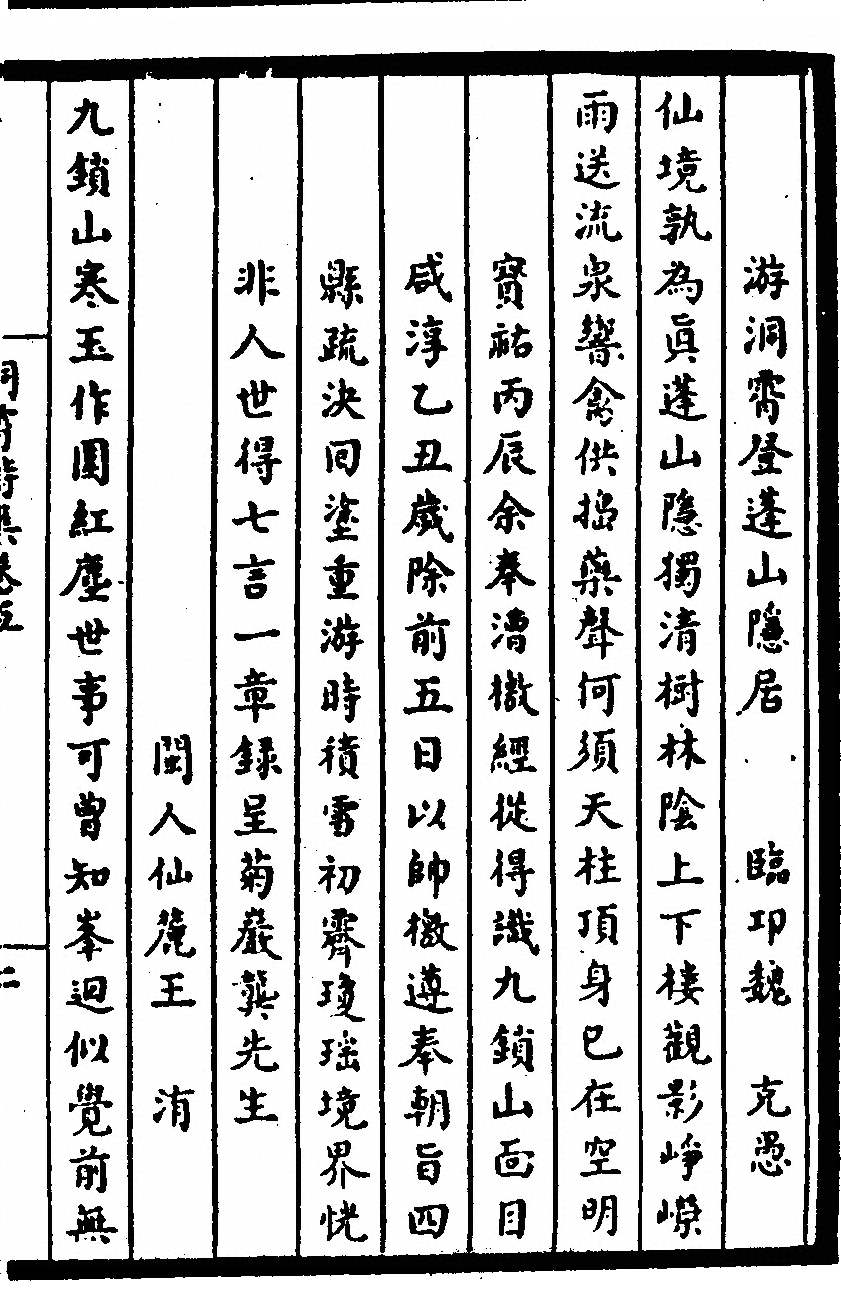 游洞霄登蓬山隱居　臨邛魏　克愚
仙境孰為眞蓬山隱獨清樹林陰上下樓觀影崢嶸
雨送流泉響禽供搗藥聲何須天柱頂身已在空明
寳祐丙辰余奉漕檄經從得識九鎖山面目
咸淳乙丑歲除前五日以帥檄遵奉朝旨四
縣疏決囘塗重游時積雪初霽瓊瑶境界恍
非人世得七言一章録呈菊巖龔先生
閩人仙麓王　洧
九鎖山寒玉作圍紅塵世事可曾知峯迴似覺前無
洞霄詩集卷五
二